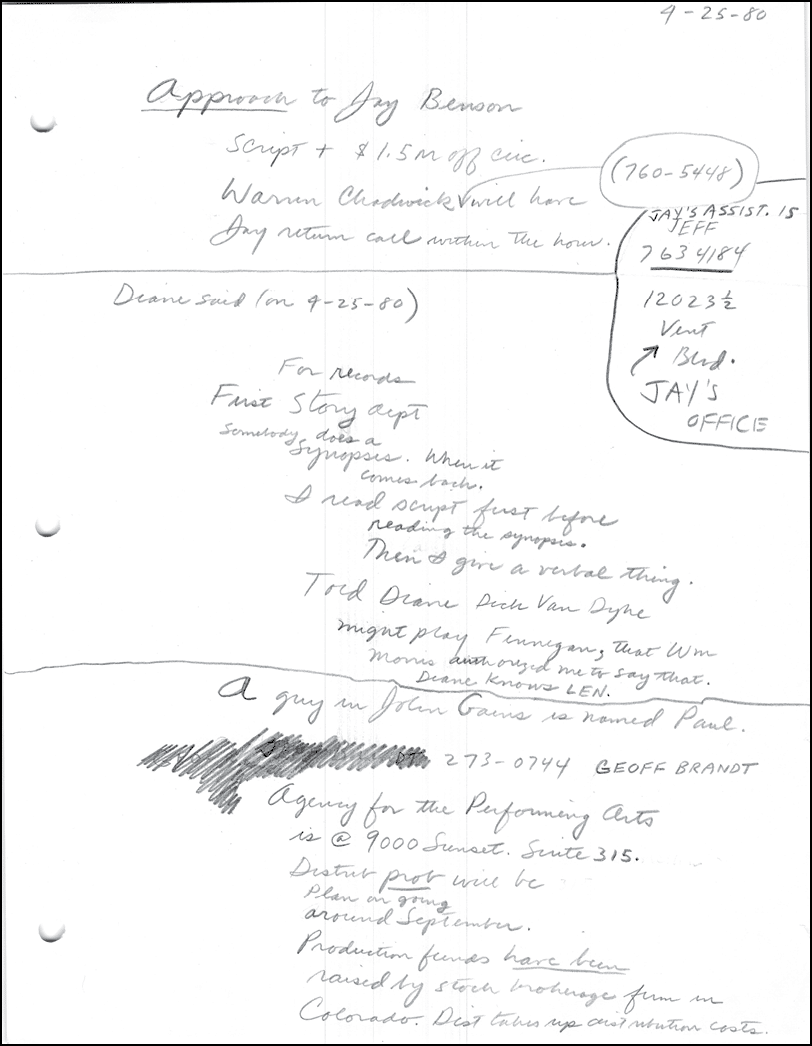 4-25-80
Approach to Jay Benson
Script + $1.5M off circ.
(760-5448)
Warren Chadwick will have
Jay return call within the hour.
JAY'S ASSIST. IS
JEFF
763 4184
12023 1/2
Vent
Blvd.
JAY'S
OFFICE
Deane said (on 4-25-80)
For records
First Story dept
Somebody does a
synopsis. When it
comes back.
I read script first before
reading the synopsis.
Then I give a verbal thing.
Told Deane Dick Van Dyke
might play Fennegan, that Wm
Morris authorized me to say that.
Deane Knows LEN.
A guy in John Gains is named Paul.
273-0744 GEOFF BRANDT
Agency for the Performing Arts
is @ 9000 Sunset. Suite 315.
Distrib prob will be
Plan on going
around September.
Production funds have been
raised by stock brokerage firm in
Colorado. Dist takes up distribution costs.